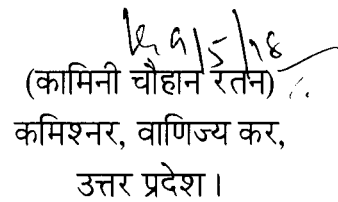 9/5/18
(कामिनी चौहान रतन)
कमिश्नर, वाणिज्य कर,
उत्तर प्रदेश।